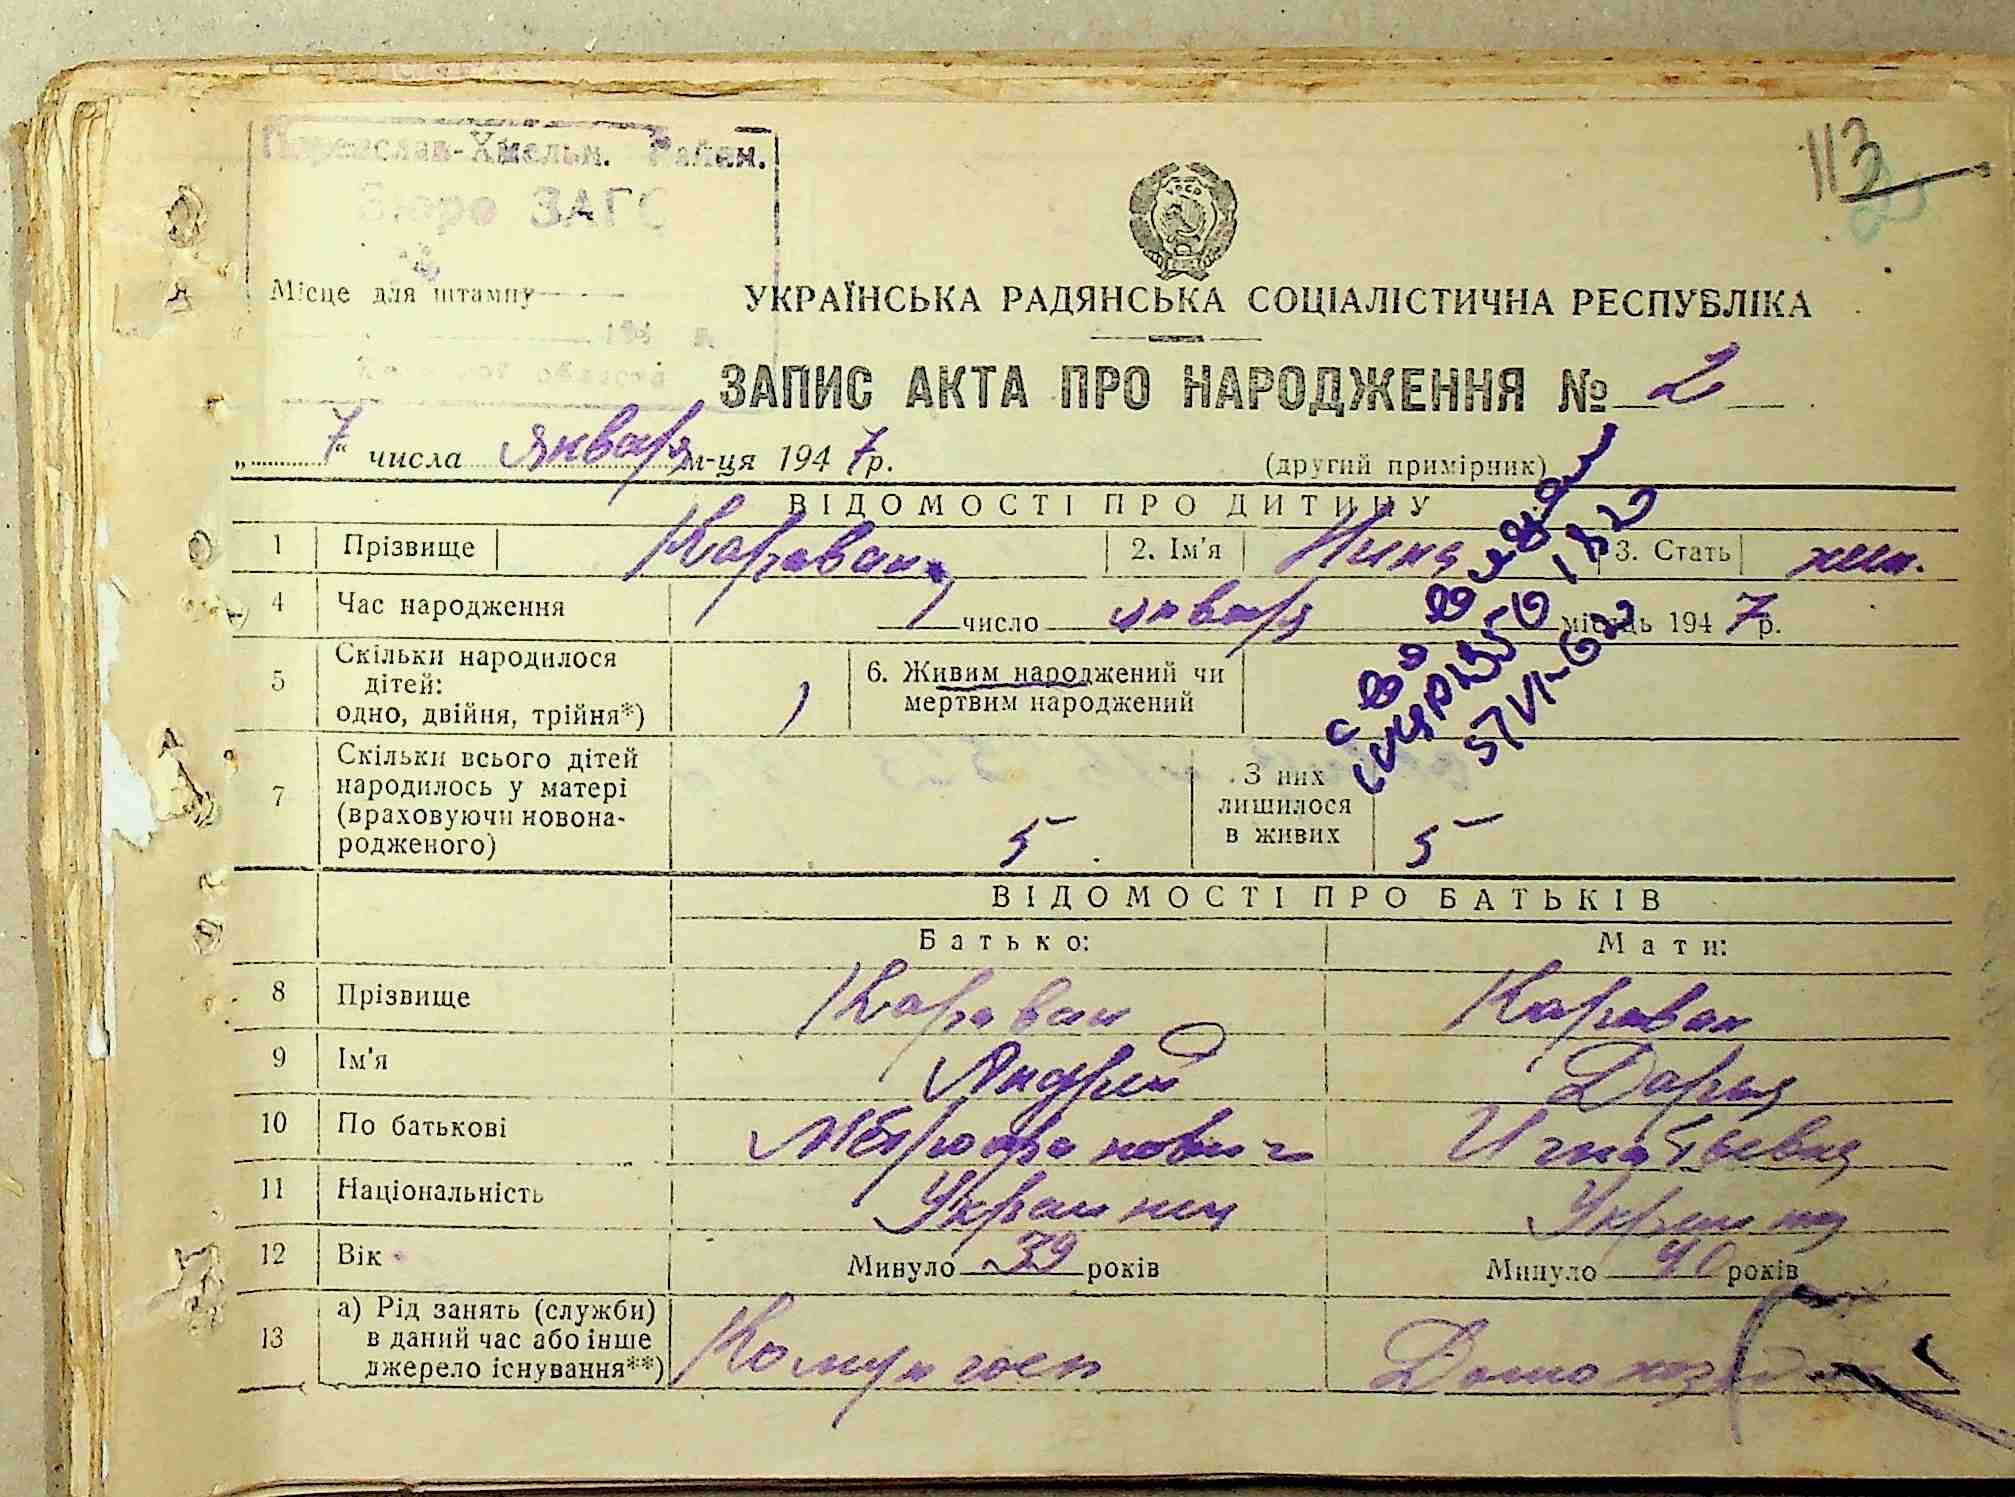 113
Переяслав-Хмельн. Район.
Бюро ЗАГС
Місце для штампу
194 р.
УРСР
УКРАЇНСЬКА РАДЯНСЬКА СОЦІАЛІСТИЧНА РЕСПУБЛІКА
ЗАПИС АКТА ПРО НАРОДЖЕННЯ № 2
„7“ числа января м-ця 1947 р.
(другий примірник)
ВІДОМОСТІ ПРО ДИТИНУ
1 Прізвище Караван 2. Ім'я Нина 3. Стать жен.
4 Час народження число января місяць 1947 р.
5 Скільки народилося дітей: одно, двійня, трійня*) 1 6. Живим народжений чи мертвим народжений
7 Скільки всього дітей народилось у матері (враховуючи новонародженого) 5 З них лишилося в живих 5
5/VI-62
ВІДОМОСТІ ПРО БАТЬКІВ
Батько: Мати:
8 Прізвище Караван Караван
9 Ім'я Андрей Дарья
10 По батькові Игнатьевна
11 Національність Украинец Украинка
12 Вік Минуло 39 років Минуло 40 років
13 а) Рід занять (служби) в даний час або інше джерело існування**)